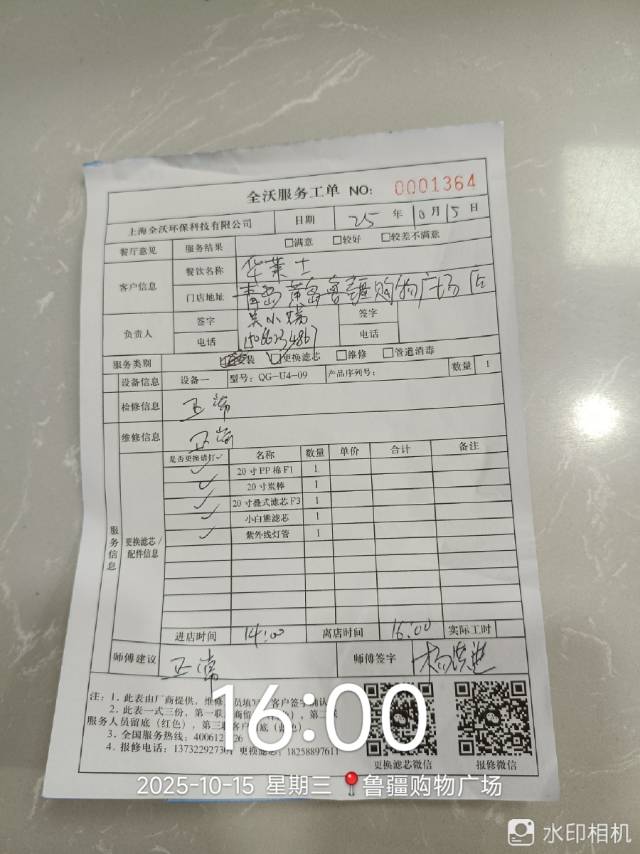 全沃服务工单 NO: 0001364
上海全沃环保科技有限公司 日期 25 年 10 月 15 日
餐厅意见 服务结果 □满意 □较好 □较差不满意
客户信息 餐饮名称 华莱士
门店地址 青岛黄岛鲁疆购物广场店
负责人 签字 签字
电话 电话
服务类别 装 □更换滤芯 □维修 □管道消毒
设备信息 设备一 型号: QG-U4-09 产品序列号: 数量 1
检修信息 正常
维修信息 正常
服务信息 更换滤芯/配件信息
是否更换请打✓ 名称 数量 单价 合计 备注
✓ 20寸PP棉F1 1
✓ 20寸炭棒 1
✓ 20寸叠式滤芯F3 1
✓ 小白雅滤芯 1
✓ 紫外线灯管 1
进店时间 14:00 离店时间 16:00 实际工时
师傅建议 正常 师傅签字
注: 1. 此表由厂商提供, 维修 员填写 客户签字确认
2. 此表一式三份, 第一联 商留 第二联
服务人员留底 (红色), 第三联客户 底
3. 全国服务热线: 400612
4. 报修电话: 1373229273 更换滤芯: 18258897611
更换滤芯微信 报修微信
16:00
2025-10-15 星期三 鲁疆购物广场
水印相机